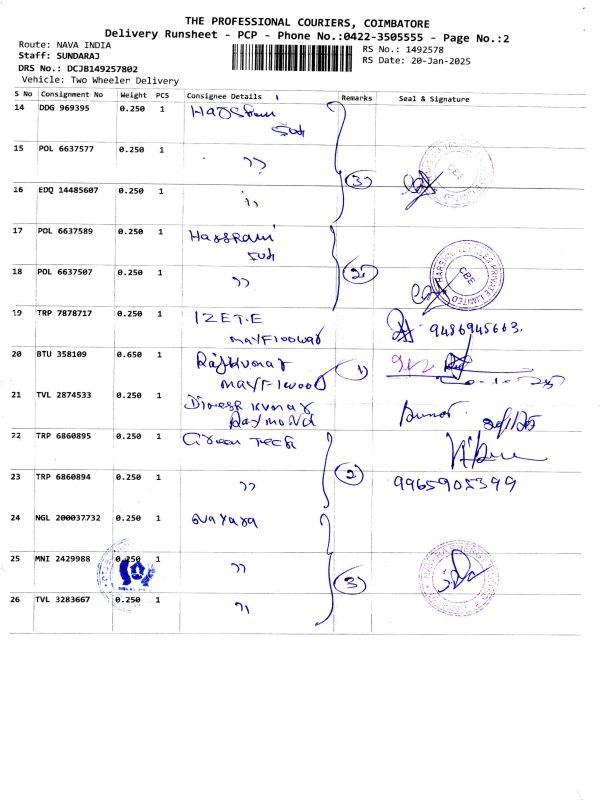 THE PROFESSIONAL COURIERS, COIMBATORE
Delivery Runsheet - PCP - Phone No.:0422-3505555 - Page No.:2
Route: NAVA INDIA
RS No.: 1492578
Staff: SUNDARAJ
RS Date: 20-Jan-2025
DRS No.: DCJB149257802
Vehicle: Two Wheeler Delivery
S No Consignment No Weight PCS Consignee Details Remarks Seal & Signature
14 DDG 969395 0.250 1
15 POL 6637577 0.250 1 ,,
16 EDQ 14485607 0.250 1 ,, 3
17 POL 6637589 0.250 1
18 POL 6637507 0.250 1 ,, 2
CBE
19 TRP 7878717 0.250 1 IZET.E 9486945663.
20 BTU 358109 0.650 1 1
21 TVL 2874533 0.250 1 Dinesh kumar
Raymond
22 TRP 6860895 0.250 1 Green Tech
23 TRP 6860894 0.250 1 ,, 2 9965905399
24 NGL 200037732 0.250 1
25 MNI 2429988 0.250 1 ,, 3
26 TVL 3283667 0.250 1 ,,